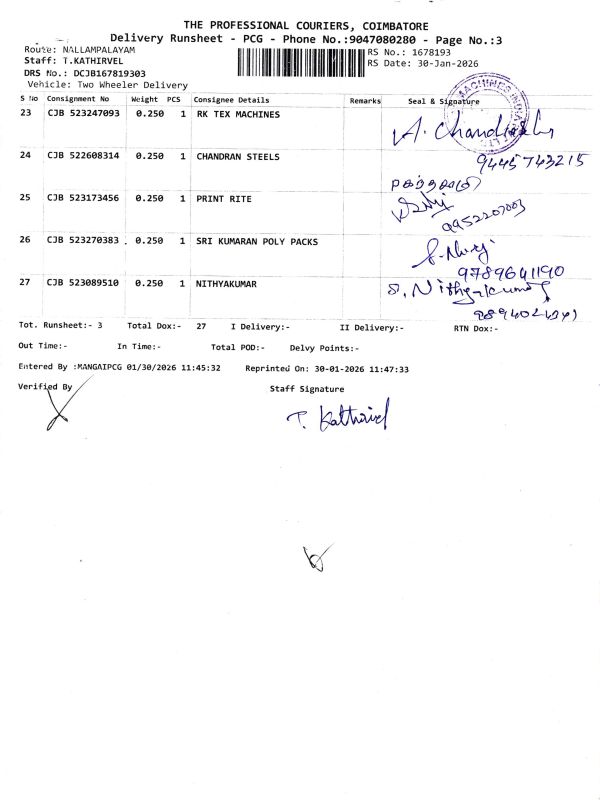 THE PROFESSIONAL COURIERS, COIMBATORE
Delivery Runsheet - PCG - Phone No.:9047080280 - Page No.:3
Route: NALLAMPALAYAM
RS No.: 1678193
Staff: T.KATHIRVEL
RS Date: 30-Jan-2026
DRS No.: DCJB167819303
Vehicle: Two Wheeler Delivery
S No Consignment No Weight PCS Consignee Details Remarks Seal & Signature
23 CJB 523247093 0.250 1 RK TEX MACHINES
24 CJB 522608314 0.250 1 CHANDRAN STEELS
9445743215
25 CJB 523173456 0.250 1 PRINT RITE
9952207003
26 CJB 523270383 0.250 1 SRI KUMARAN POLY PACKS
9789641190
27 CJB 523089510 0.250 1 NITHYAKUMAR
Tot. Runsheet:- 3 Total Dox:- 27 I Delivery:- II Delivery:- RTN Dox:-
Out Time:- In Time:- Total POD:- Delvy Points:-
Entered By :MANGAIPCG 01/30/2026 11:45:32 Reprinted On: 30-01-2026 11:47:33
Verified By Staff Signature
T. Kathirvel